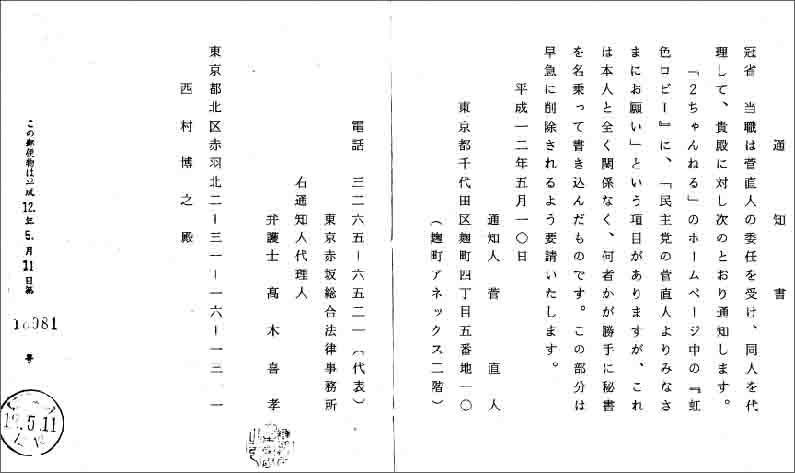 通知書
冠省 当職は菅直人の委任を受け、同人を代
理して、貴殿に対し次のとおり通知します。
「2ちゃんねる」のホームページ中の『虹
色コピー』に、「民主党の菅直人よりみなさ
まにお願い」という項目がありますが、これ
は本人と全く関係なく、何者かが勝手に秘書
を名乗って書き込んだものです。この部分は
早急に削除されるよう要請いたします。
平成一二年五月一〇日
東京都千代田区麹町四丁目五番地一〇
通知人 菅直人
(麹町アネックス二階)
電話 三二六五ー六五二一(代表)
東京赤坂総合法律事務所
右通知人代理人
弁護士 髙木喜孝
東京都北区赤羽北二ー三一ー一六ー一三一一
西村博之殿
この郵便物は平成12年5月11日第
号
12.5.11